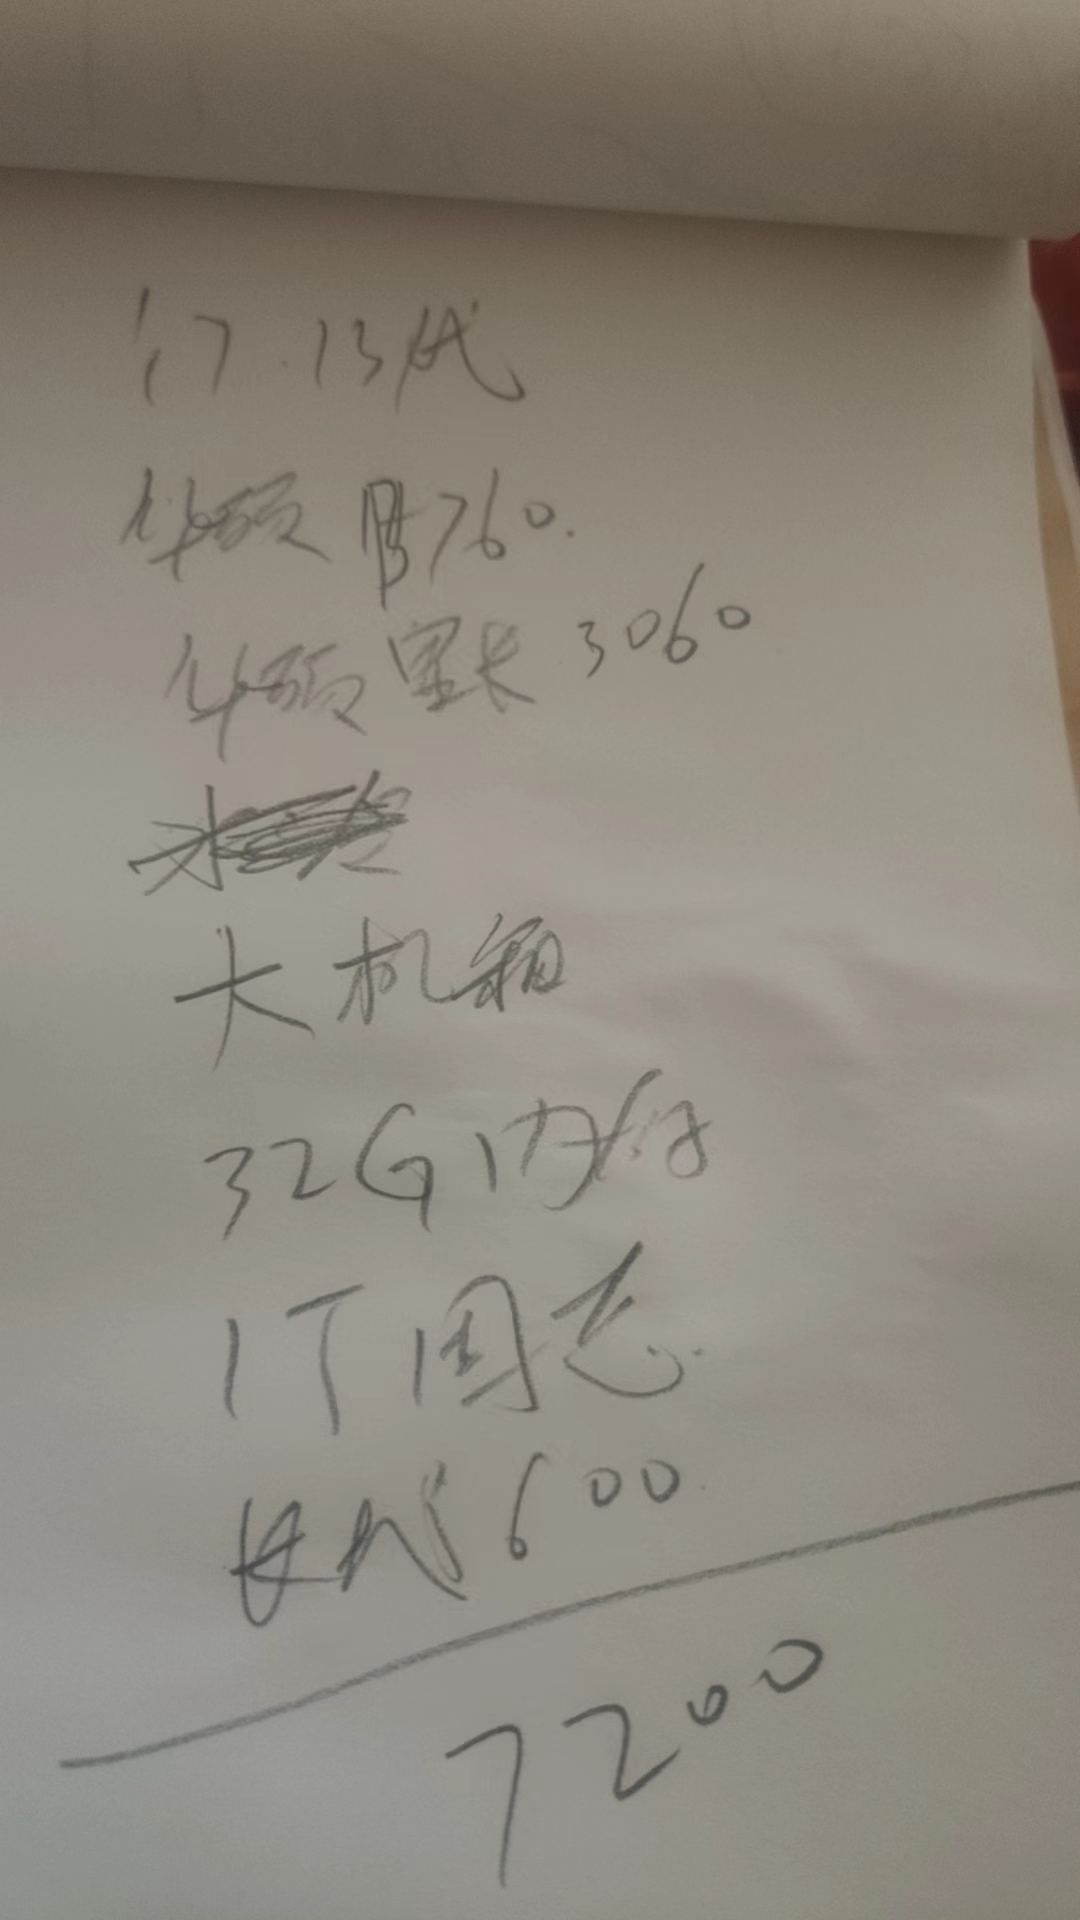 i7.13代
华硕B760.
华硕 3060
大机箱
32G内存
1T固态
600
7200